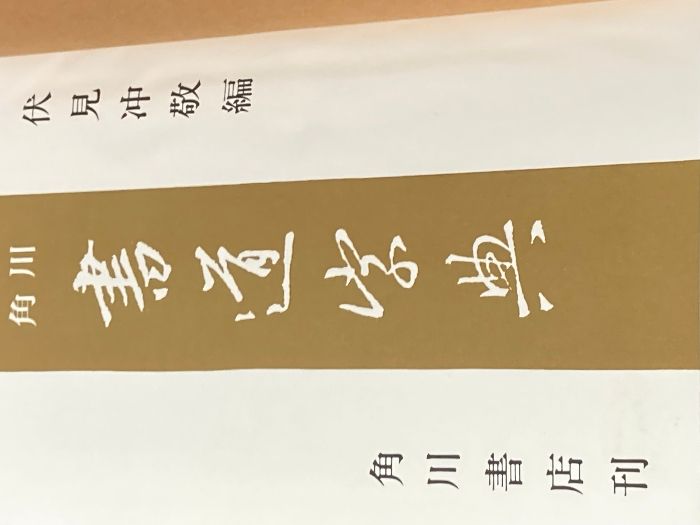 伏見冲敬編
角川
書道字典
角川書店刊